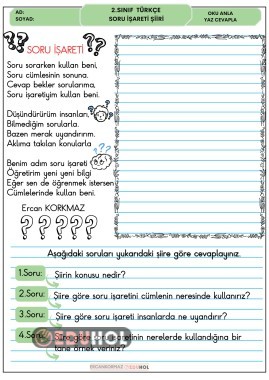 AD:
SOYAD:
2.SINIF TÜRKÇE
SORU İŞARETİ ŞİİRİ
OKU ANLA
YAZ CEVAPLA
SORU İŞARETİ
Soru sorarken kullan beni,
Soru cümlesinin sonuna.
Cevap bekler sorularıma,
Soru işaretiyim kullan beni.
Düşündürürüm insanları,
Bilmediğim sorularla.
Bazen merak uyandırırım,
Aklıma takılan konularla
Benim adım soru işareti
Öğretirim yeni yeni bilgi
Eğer sen de öğrenmek istersen
Cümlelerinde kullan beni.
Ercan KORKMAZ
? ? ? ? ?
Aşağıdaki soruları yukarıdaki şiire göre cevaplayınız.
1.Soru: Şiirin konusu nedir?
2.Soru: Şiire göre soru işaretini cümlenin neresinde kullanırız?
3.Soru: Şiire göre soru işareti insanlarda ne uyandırır?
4.Soru: Şiire göre soru işaretinin nerelerde kullandığına bir
tane örnek veriniz?
EDUHOL